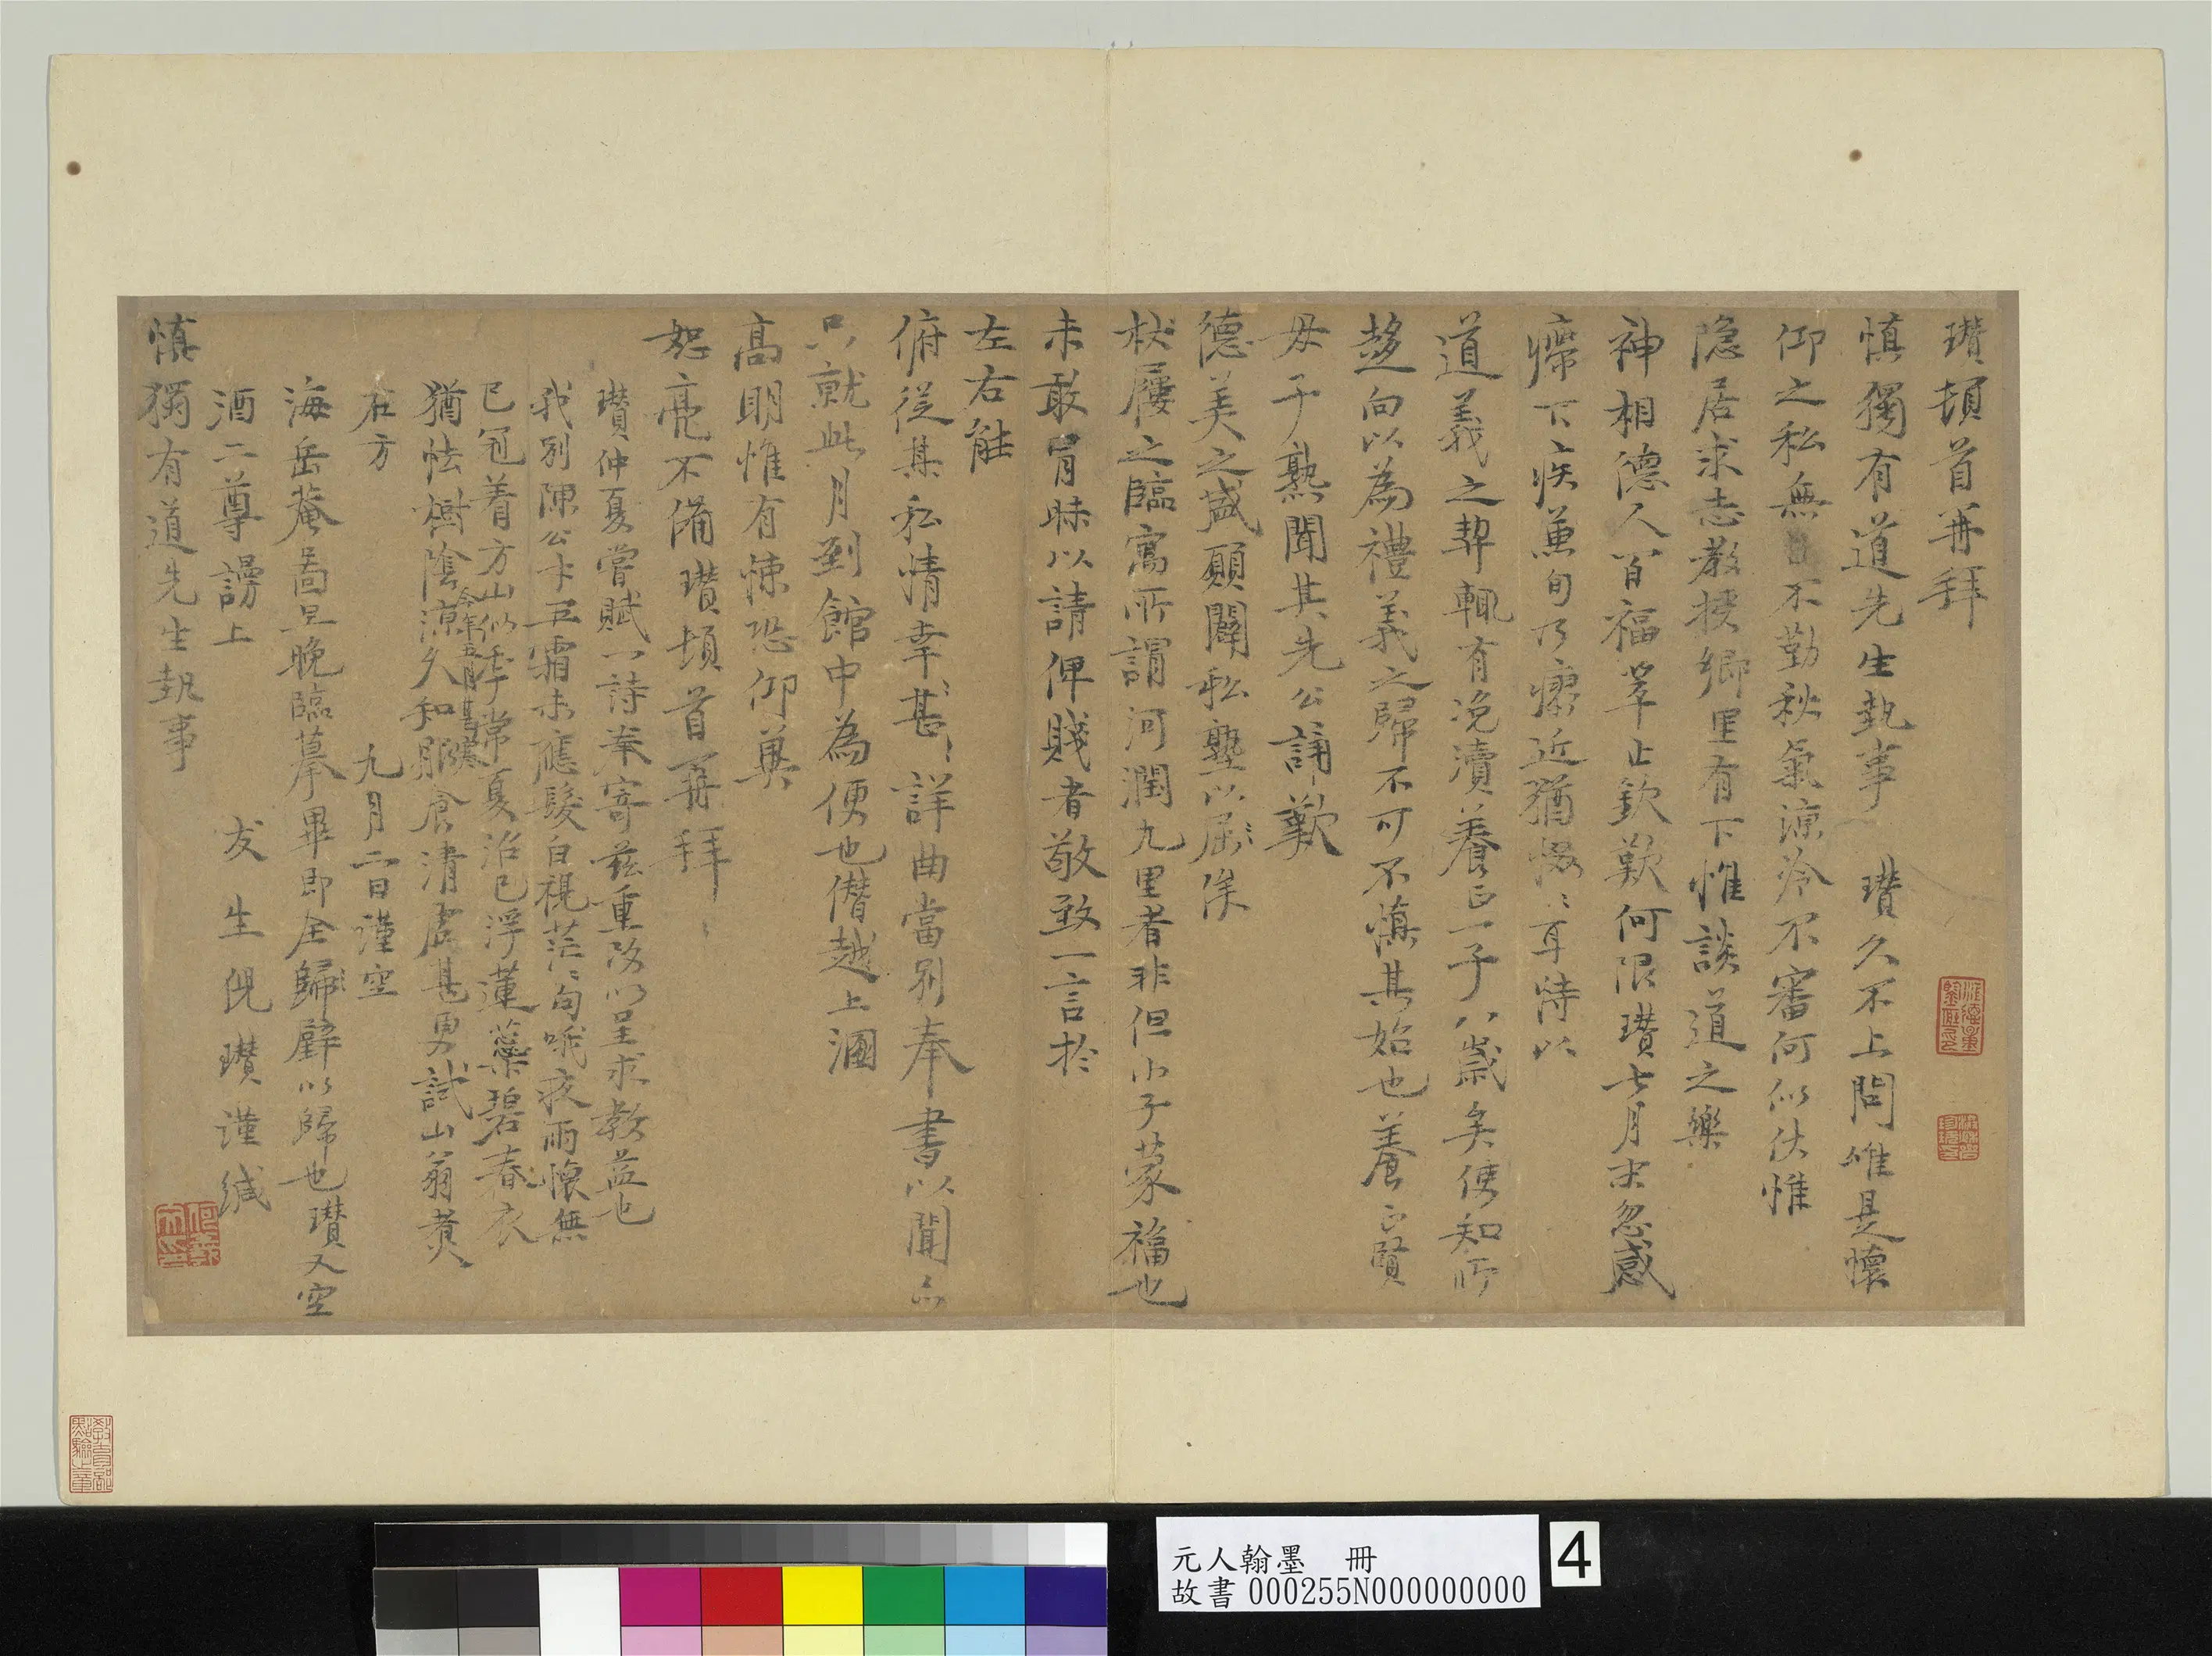 瓚頓首再拜
慎獨有道先生執事 瓚久不上問唯是懷
仰之私無不勤秋氣涼冷不審何似伏惟
隱居求志教授鄉里有下帷談道之樂
神相德人百福萃止欽歎何限瓚七月末忽感
瘧下疾兼旬乃瘳近猶惙〻耳恃以
道義之契輒有浼瀆養正一子八歲矣使知所
趍向以為禮義之歸不可不慎其始也養正賢
母子熟聞其先公誦歎
德美之盛願闢私塾以屈〻俟
杖屨之臨寓所謂河潤九里者非但小子蒙福也
未敢冒昧以請俾賤者敬致一言於
左右能
俯從其私情幸甚〻詳曲當別奉書以聞亦
只就此月到館中為便也僭越上溷
高明惟有悚恐仰冀
恕亮不備瓚頓首再拜
瓚仲夏嘗賦一詩奉寄茲重改以呈求教益也
我別陳公十五霜未應髮白視茫〻句哦夜雨懷無
已冠着方山似季常夏浴已浮蓮蘂碧春衣
猶怯樹陰涼久知服食清虛甚勇試山翁煑
石方 九月二日謹空
今年五月甚寒
海岳菴圖旦晚臨摹畢即全歸〻璧以歸也瓚又空
酒二尊謾上
友生倪瓚謹緘
慎獨有道先生執事
元人翰墨 冊
故書000255N000000000
4